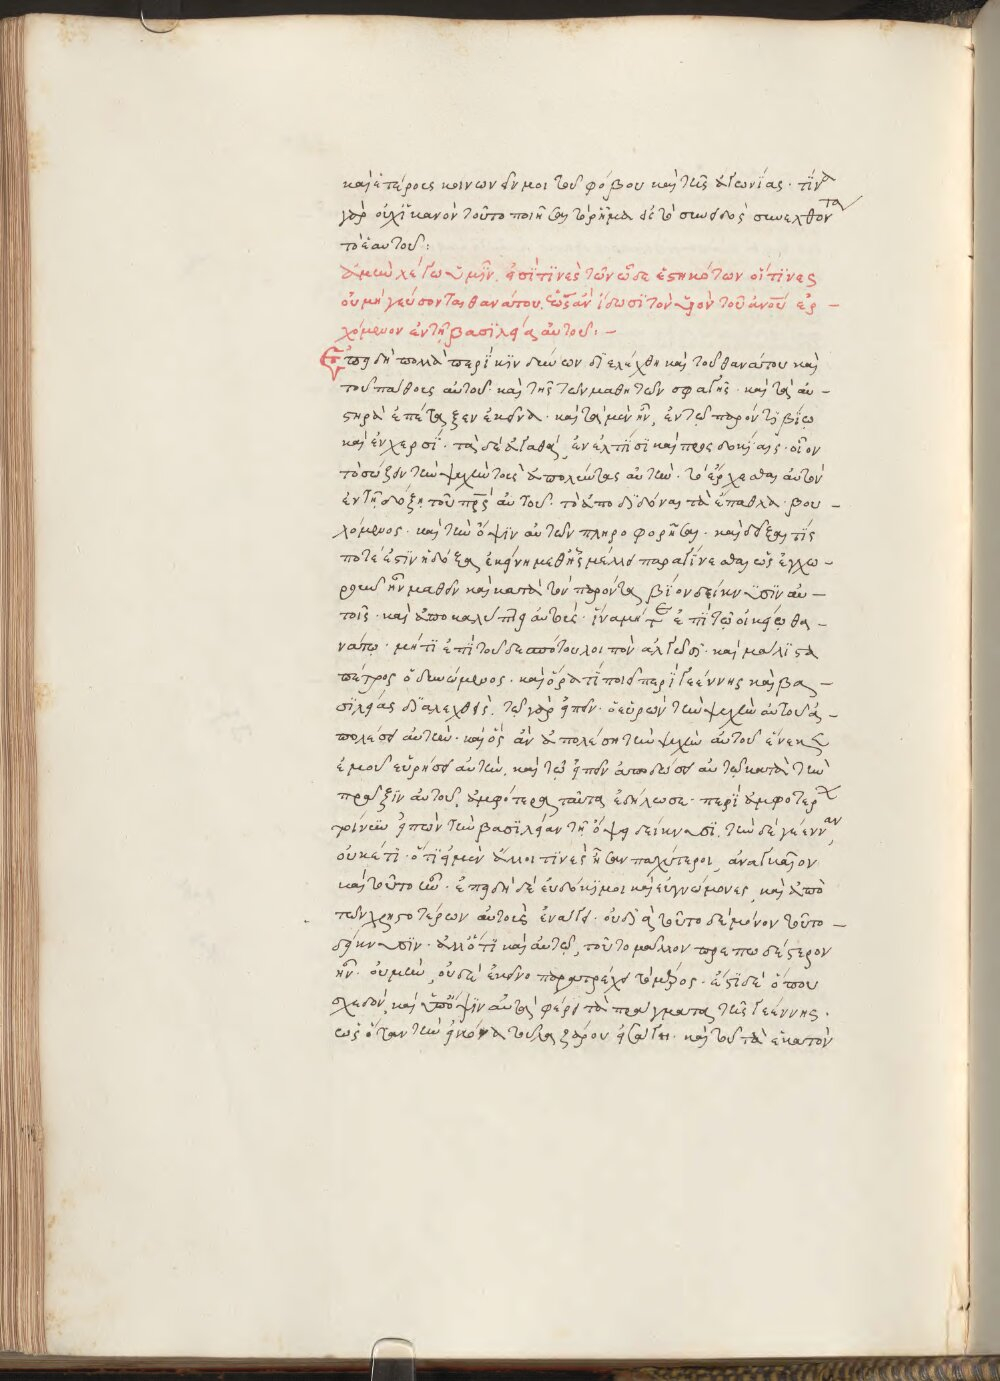 καὶ ἑτέροις κοινωνεῖν μοι τοῦ φόβου καὶ τῆς ἀγωνίας· τίνα
γὰρ οὐχ ἱκανὸν τοῦτο ποιῆσαι τὸ ῥῆμα εἰς τὸ συνελθόντα
τὸ ἑαυτοῦ:
ἀμὴν λέγω ὑμῖν. εἰσί τινες τῶν ὧδε ἑστηκότων οἵτινες
οὐ μὴ γεύσονται θανάτου. ἕως ἂν ἴδωσι τὸν υἱὸν τοῦ ἀνου ἐρ-
χόμενον ἐν τῇ βασιλείᾳ αὐτοῦ:-
Ἐπειδὴ πολλὰ περὶ κινδύνων διελέχθη καὶ τοῦ θανάτου καὶ
τοῦ πάθους αὐτοῦ· καὶ τῆς τῶν μαθητῶν σφαγῆς· καὶ τὰ αὐ-
στηρὰ ἐπέταξεν ἐκεῖνα· καὶ τὰ μὲν ἦν, ἐν τῷ παρόντι βίῳ
καὶ ἐν χερσί· τὰ δὲ ἀγαθὰ, ἐν ἐλπίσι καὶ προσδοκίαις· οἷον
τὸ σώζειν τὴν ψυχὴν τοὺς ἀπολύντας αὐτήν· τὸ ἔρχεσθαι αὐτὸν
ἐν τῇ δόξῃ τοῦ πρς αὐτοῦ· τὸ ἀποδιδόναι τὰ ἔπαθλα· βου-
λόμενος· καὶ τὴν ὄψιν αὐτῶν πληροφορῆσαι· καὶ δεῖξαι τίς
ποτέ ἐστιν ἡ δόξα ἐκείνη μεθ' ἧς μέλλει παραγίνεσθαι ὡς ἐγχω-
ροῦν ἦν μαθεῖν καὶ κατὰ τὸν παρόντα βίον δείκνυσιν αὐ-
τοῖς· καὶ ἀποκαλύπτει αὐτοῖς· ἵνα μήτε ἐπὶ τῷ οἰκείῳ θα-
νάτῳ· μήτε ἐπὶ τοῦ δεσπότου λοιπὸν ἀλγεῖσθ· καὶ μάλιστα
πέτρος ὀδυνώμενος· καὶ ὅρα τί ποιεῖ περὶ γεέννης καὶ βα-
σιλείας διαλεχθείς. τῷ γὰρ εἰπεῖν· ὁ εὑρὼν τὴν ψυχὴν αὐτοῦ ἀ-
πολέσει αὐτήν· καὶ ὃς ἂν ἀπολέσῃ τὴν ψυχὴν αὐτοῦ ἕνεκεν
ἐμοῦ εὑρήσει αὐτήν, καὶ τῷ εἰπεῖν ἀποδώσει αὐτῷ κατὰ τὴν
πρᾶξιν αὐτοῦ, ἀμφότερα ταῦτα ἐδήλωσε· περὶ ἀμφοτέρων
τοίνυν εἰπὼν τὴν βασιλείαν τῇ ὄψει δείκνυσι. τὴν δὲ γέενναν,
οὐκέτι· ὅτι εἰ μὲν ἄλλοι τινὲς ἦσαν παχύτεροι, ἀναγκαῖον
καὶ τοῦτο ἦν· ἐπειδὴ δὲ εὐδόκιμοι καὶ εὐγνώμονες, καὶ ἀπὸ
τῶν χρηστοτέρων αὐτοὺς ἐνάγει· οὐ διὰ τοῦτο δὲ μόνον τοῦτο-
δείκνυσιν· ἀλλ' ὅτι καὶ αὐτῷ, τοῦτο μᾶλλον πρεπωδέστερον
ἦν· οὐ μὴν, οὐδὲ ἐκεῖνο παρατρέχει τὸ μέρος· ἔστι δὲ ὅπου
σχεδὸν, καὶ ὑπ' ὄψιν αὐτὰ φέρει τὰ πράγματα τῆς γεέννης.
ὡς ὅταν τὴν εἰκόνα τοῦ λαζάρου εἰσάγῃ· καὶ τοῦ τὰ ἑκατὸν